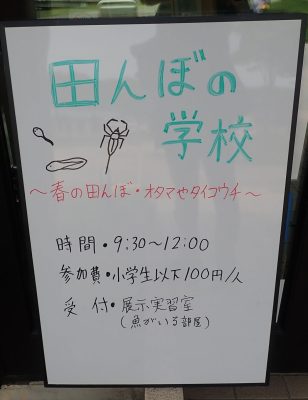 田んぼの
学校
～春の田んぼ・オタマやタイコウチ～
時間・9:30～12:00
参加費・小学生以下100円/人
受付・展示実習室
(魚がいる部屋)